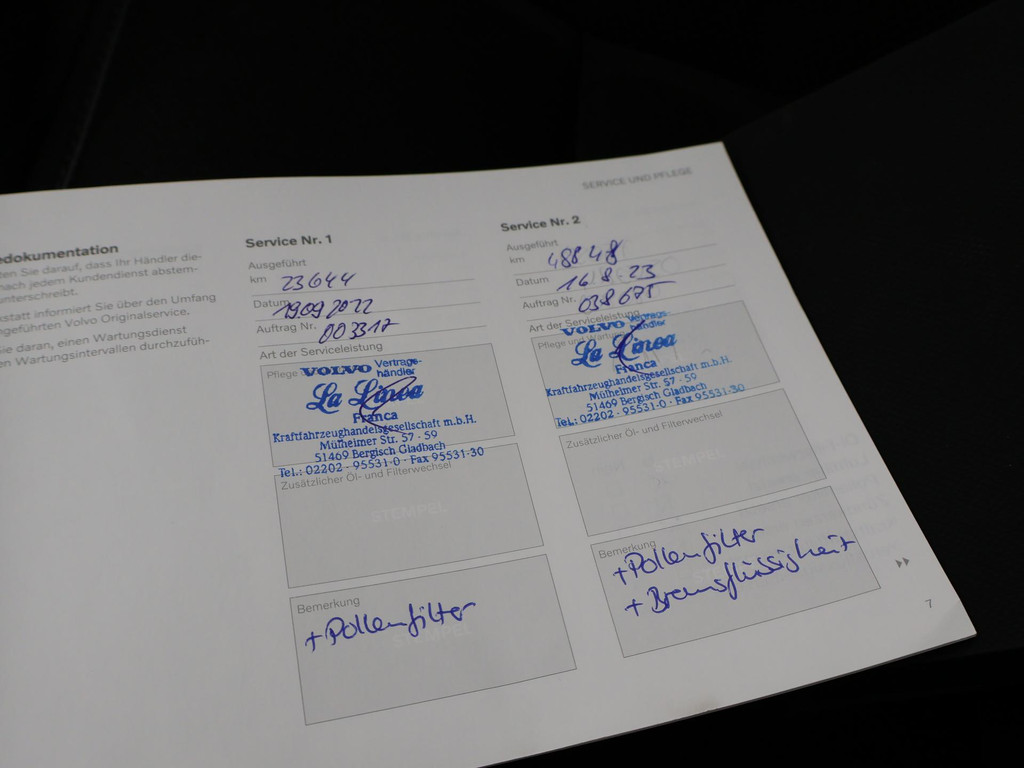 SERVICE UND PFLEGE
edokumentation
ten Sie darauf, dass Ihr Händler die-
nach jedem Kundendienst abstem-
unterschreibt.
kstatt informiert Sie über den Umfang
ngeführten Volvo Originalservice.
ie daran, einen Wartungsdienst
en Wartungsintervallen durchzufüh-
Service Nr. 1
Ausgeführt
km 23644
Datum 19.09.2022
Auftrag Nr. 003317
Art der Serviceleistung
Pflege
VOLVO Vertrags-
händler
La Linea
Franca
Kraftfahrzeughandelsgesellschaft m.b.H.
Mülheimer Str. 57 - 59
51469 Bergisch Gladbach
Tel.: 02202 - 95531-0 · Fax 95531-30
Zusätzlicher Öl- und Filterwechsel
STEMPEL
Bemerkung
+Pollenfilter
STEMPEL
Service Nr. 2
Ausgeführt
km 48848
Datum 16.8.23
Auftrag Nr. 038675
Art der Serviceleistung
Pflege und Wartung
VOLVO Vertrags-
händler
La Linea
Franca
Kraftfahrzeughandelsgesellschaft m.b.H.
Mülheimer Str. 57 - 59
51469 Bergisch Gladbach
Tel.: 02202 - 95531-0 · Fax 95531-30
Zusätzlicher Öl- und Filterwechsel
STEMPEL
Bemerkung
+Pollenfilter
+ Bremsflüssigkeit
7